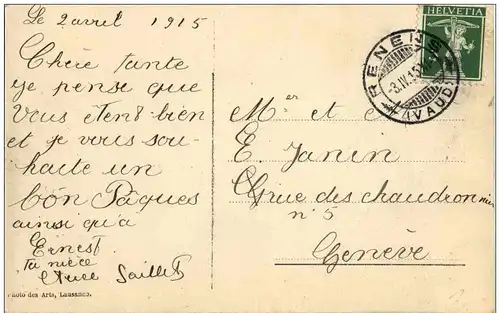 Le 2 avril 1915
Chère tante
je pense que
vous etent bien
et je vous sou-
haite un
bon Pâques
ainsi qu'à
Ernest
ta nièce
Photo des Arts, Lausanne.
HELVETIA
RENENS
-3.IV.15
(VAUD)
Mer et
E. Janin
Grue des chaudronnier
n° 5
Genève